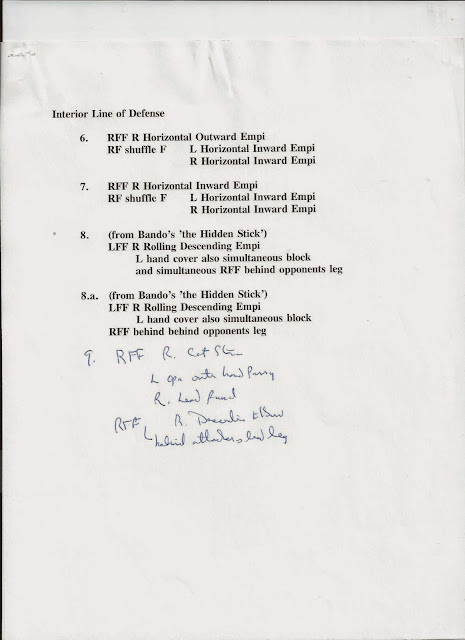 Interior Line of Defense
6. RFF R Horizontal Outward Empi
RF shuffle F L Horizontal Inward Empi
R Horizontal Inward Empi
7. RFF R Horizontal Inward Empi
RF shuffle F L Horizontal Inward Empi
R Horizontal Inward Empi
8. (from Bando's 'the Hidden Stick')
LFF R Rolling Descending Empi
L hand cover also simultaneous block
and simultaneous RFF behind opponents leg
8.a. (from Bando's 'the Hidden Stick')
LFF R Rolling Descending Empi
L hand cover also simultaneous block
RFF behind behind opponents leg
9. RFF R. Cat
L hand Parry
R.
RFF R. Elbow
behind attackers lead leg